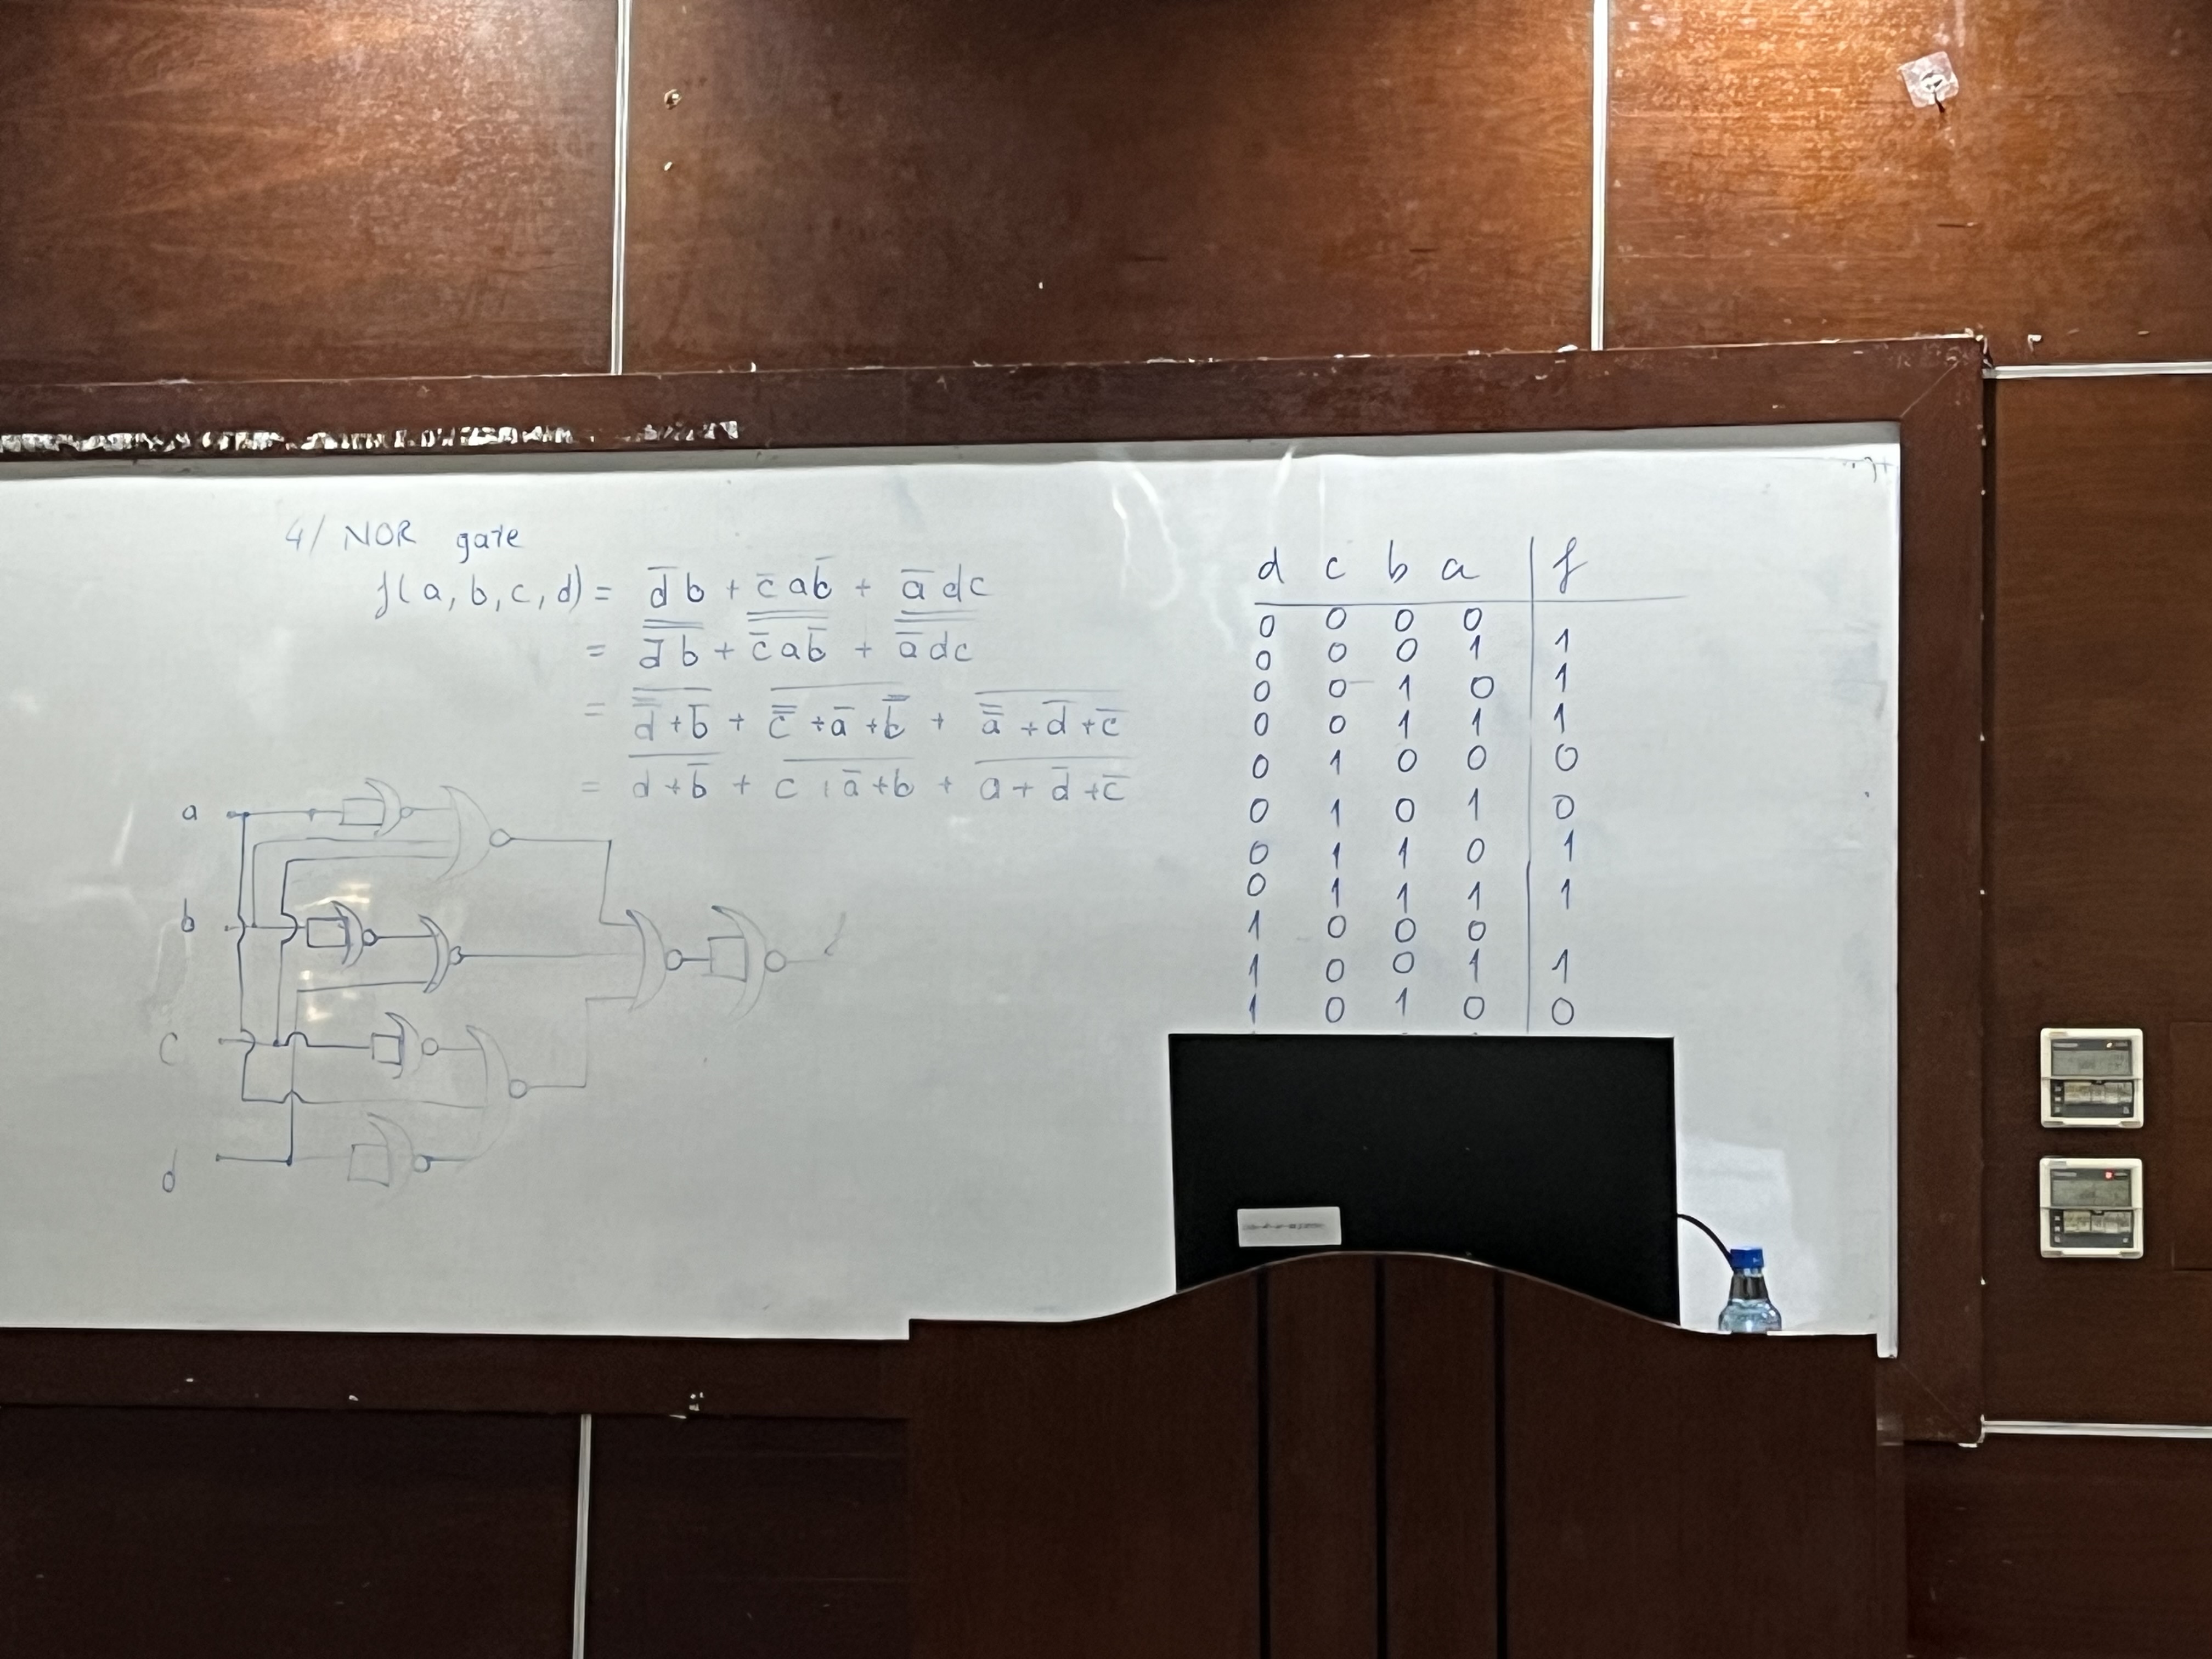 4/ NOR gate
f(a, b, c, d) = d̅ b + c̅ a b̅ + a̅ d c
= d̿̅ b̿ + c̿̅ a̿ b̿̅ + a̿̅ d̿ c̿
= \overline{d̿ + b̅} + \overline{c̿ + a̅ + b̿} + \overline{a̿ + d̅ + c̅}
= \overline{d + b̅} + \overline{c + a̅ + b} + \overline{a + d̅ + c̅}
a
b
c
d
d c b a f
0 0 0 0
0 0 0 1 1
0 0 1 0 1
0 0 1 1 1
0 1 0 0 0
0 1 0 1 0
0 1 1 0 1
0 1 1 1 1
1 0 0 0
1 0 0 1 1
1 0 1 0 0